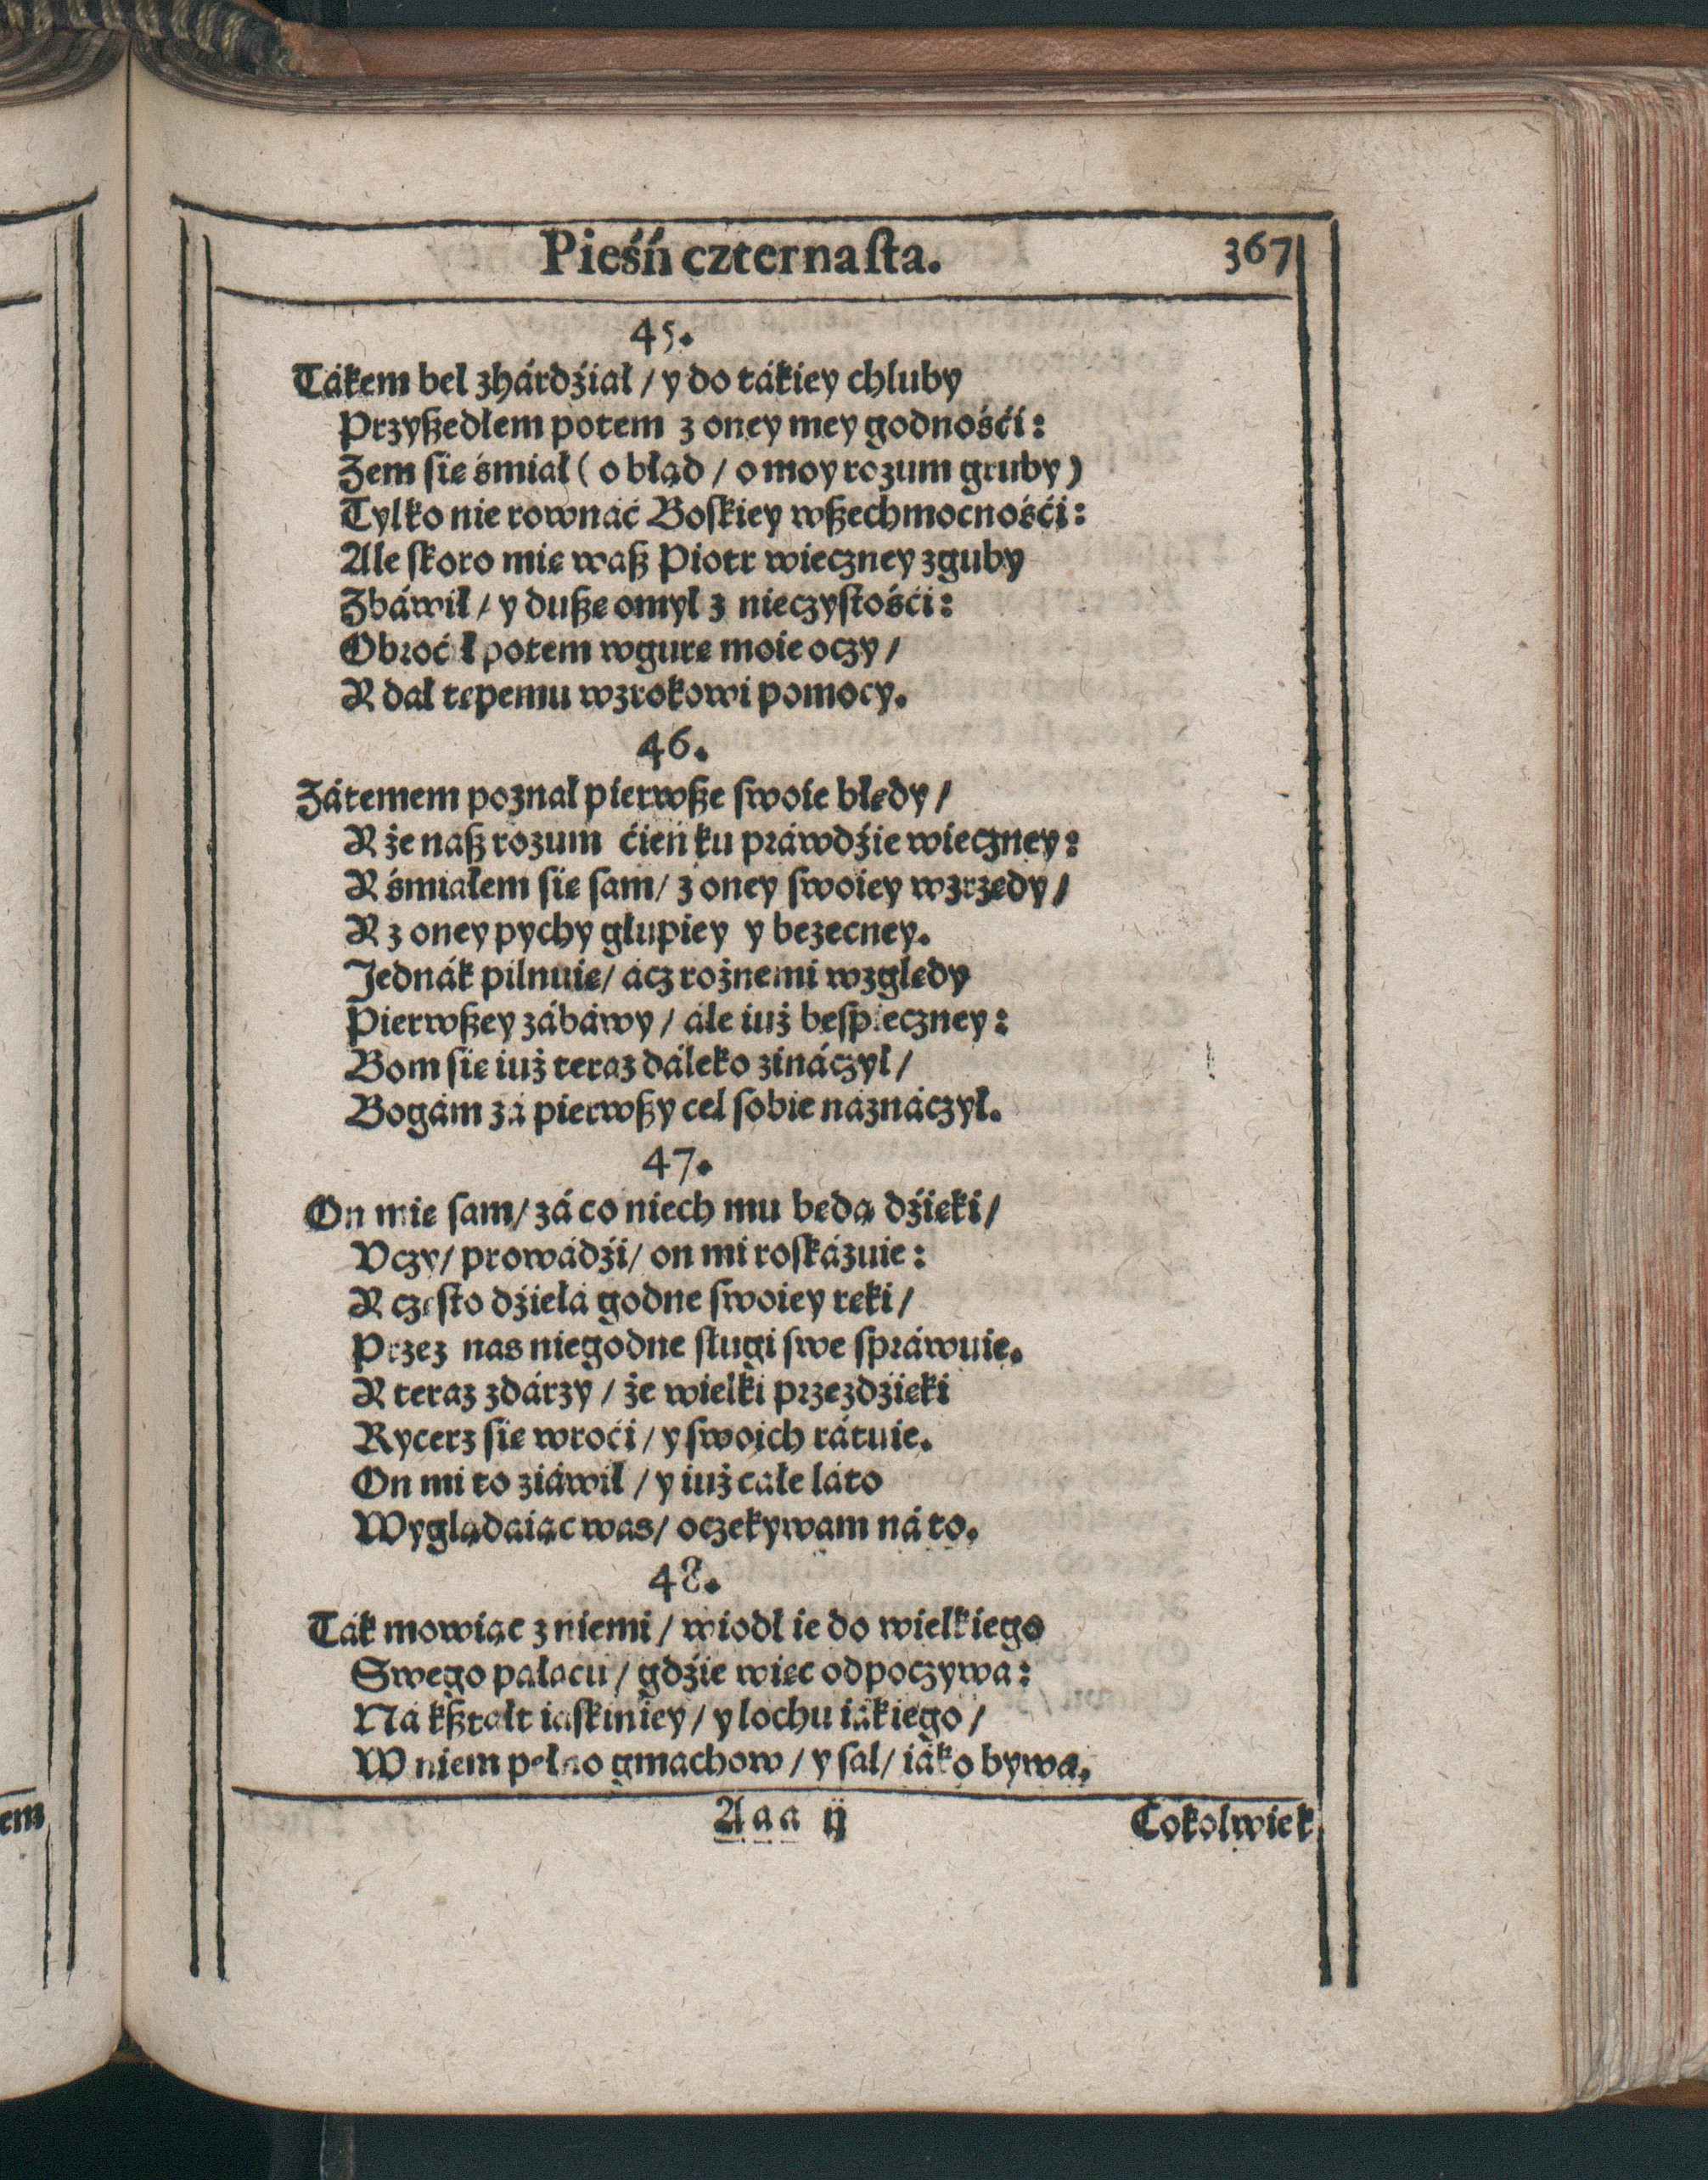 Pieśń czternaſta. 367
45.
Tákem beł zhárdźiał / y do tákiey chluby
Przyßedłem potem z oney mey godnośći:
Zem ſię śmiał ( o błąd / o moy rozum gruby )
Tylko nie rownáć Boſkiey wßechmocnośći:
Ale ſkoro mię waß Piotr wieczney zguby
Zbáwił / y dußę omył z nieczyſtośći:
Obroćił potem wgurę moie oczy /
A dał tępemu wzrokowi pomocy.
46.
Zátemem poznał pierwße ſwoie błędy /
A że naß rozum ćień ku práwdźie wieczney:
A śmiałem ſię ſam / z oney ſwoiey wzrzędy /
A z oney pychy głupiey y bezecney.
Jednák pilnuię / ácz rożnemi względy
Pierwßey zábáwy / ále iuż beſpieczney:
Bom ſię iuż teraz dáleko zináczył /
Bogám zá pierwßy cel ſobie náznáczył.
47.
On mię ſam / zá co niech mu będą dźięki /
Vczy / prowádźi / on mi roſkázuie:
A częſto dźiełá godne ſwoiey ręki /
Przez nas niegodne ſługi ſwe ſpráwuie.
A teraz zdárzy / że wielki przezdzięki
Rycerz ſię wroći / y ſwoich rátuie.
On mi to ziáwił / y iuż całe láto
Wyglądaiąc was / oczekywam ná to.
48.
Ták mowiąc z niemi / wiodł ie do wielkiego
Swego pałacu / gdźie więc odpoczywa:
Ná kßtałt iaſkiniey / y lochu iákiego /
W niem pełno gmachow / y ſal / iáko bywa.
Aaa ij Cokolwiek
em